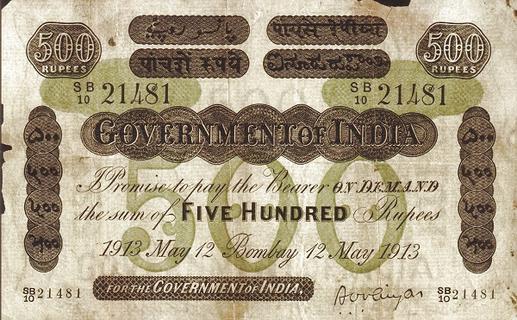 500 RUPEES
500 RUPEES
पांचशें रुपये
SB/10 21481
SB/10 21481
GOVERNMENT OF INDIA
I Promise to pay the Bearer ON DEMAND
the sum of FIVE HUNDRED Rupees
500
1913 May 12 Bombay 12 May 1913
SB/10 21481
FOR THE GOVERNMENT OF INDIA.
SB/10 21481